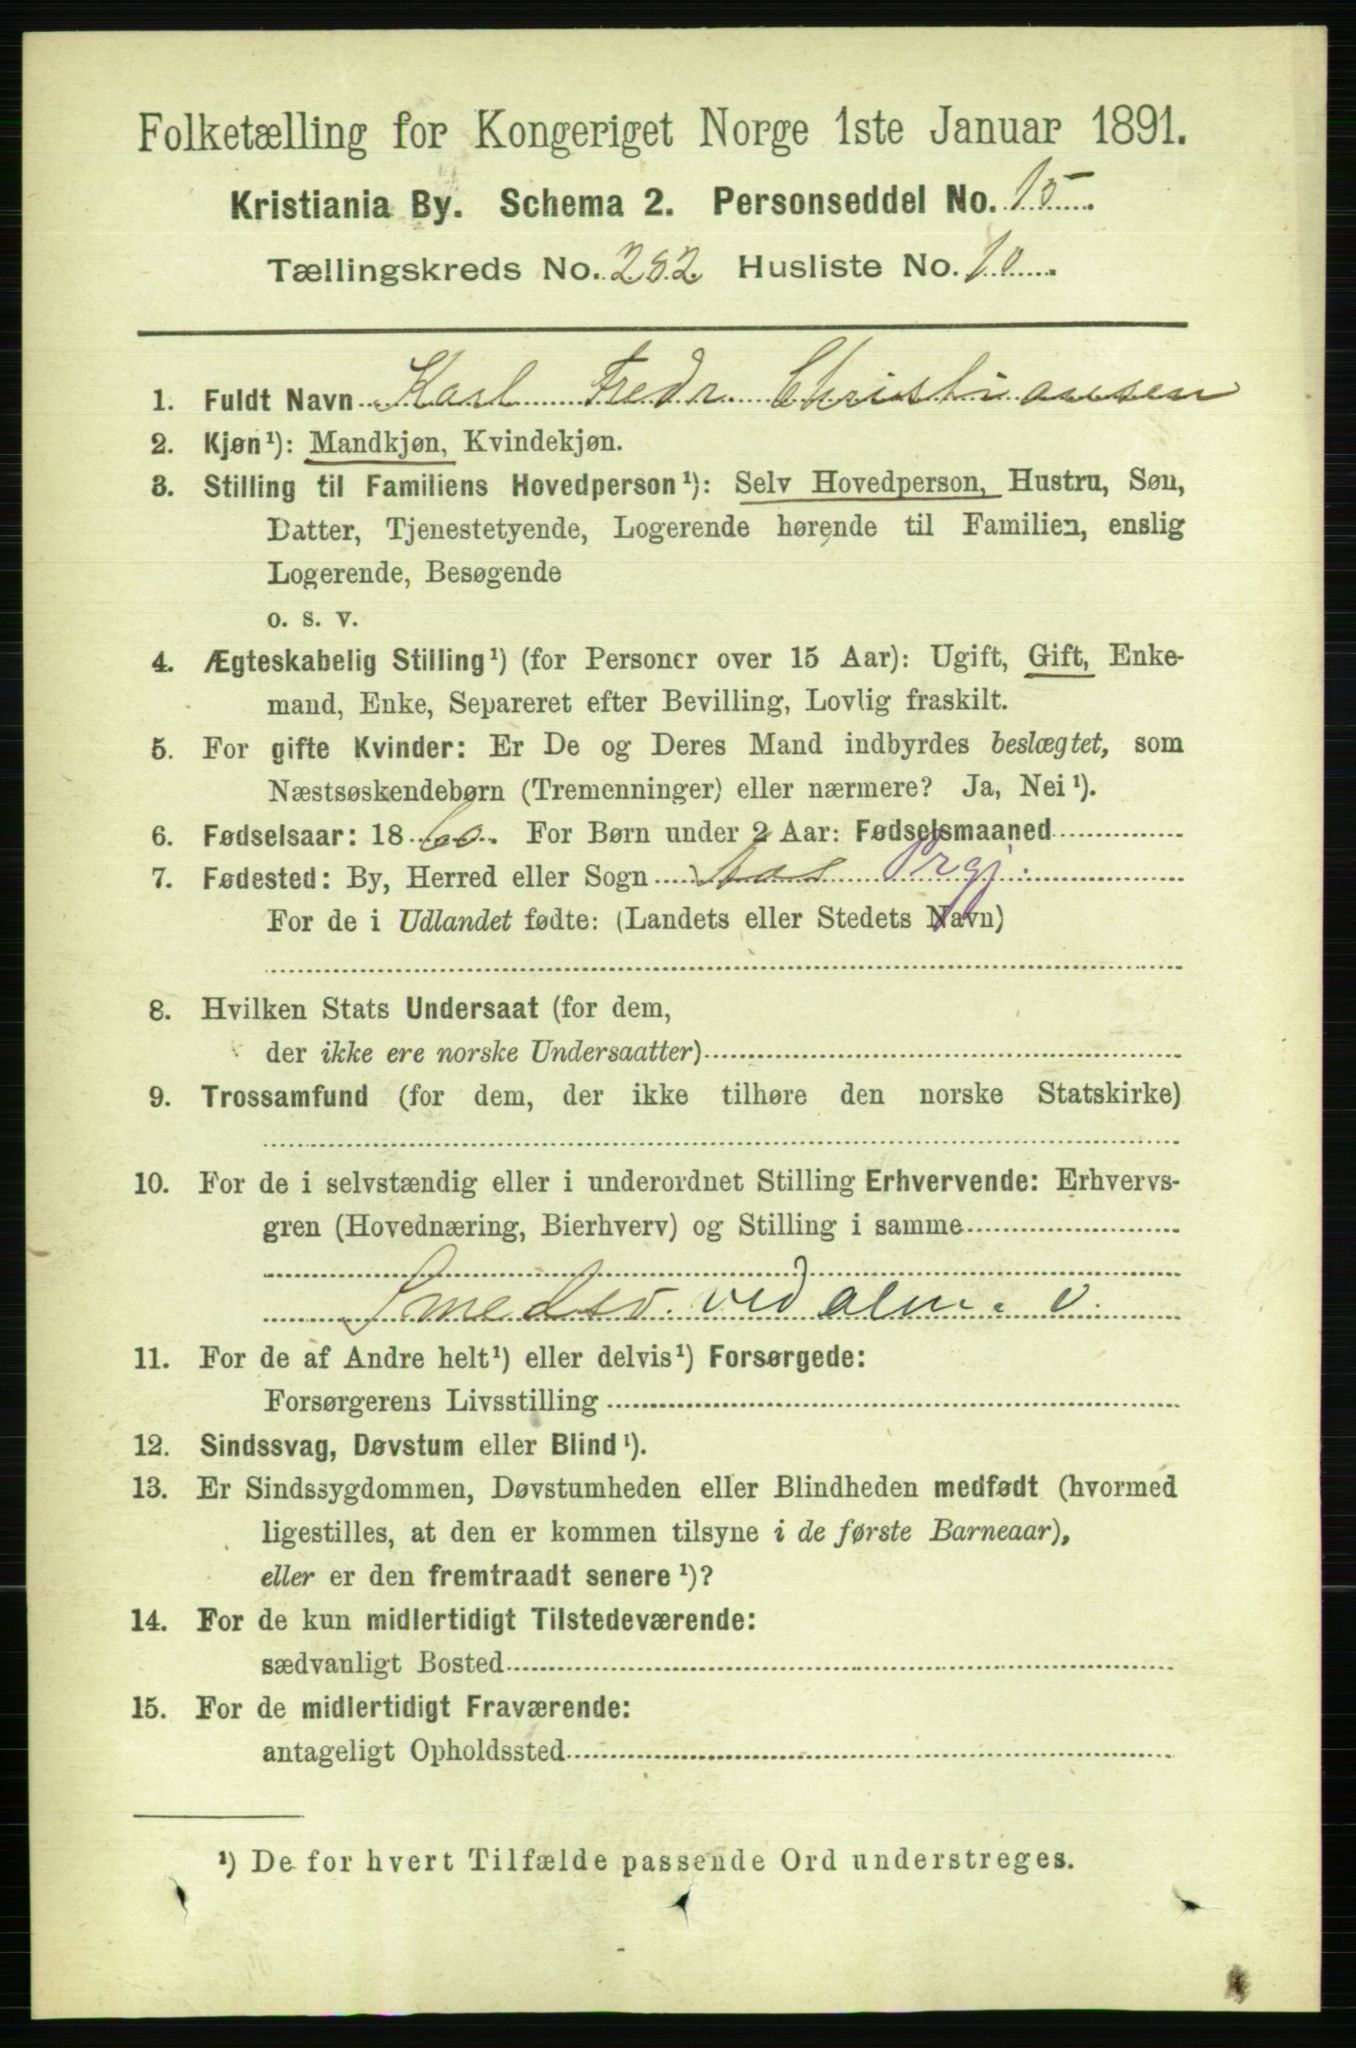 Folketælling for Kongeriget Norge 1ste Januar 1891.
Kristiania By. Schema 2. Personseddel No. 15
Tællingskreds No. 282 Husliste No. 10
1. Fuldt Navn Karl Fredr Christiansen
2. Kjøn¹): Mandkjøn, Kvindekjøn.
3. Stilling til Familiens Hovedperson¹): Selv Hovedperson, Hustru, Søn,
Datter, Tjenestetyende, Logerende hørende til Familien, enslig
Logerende, Besøgende
o. s. v.
4. Ægteskabelig Stilling¹) (for Personer over 15 Aar): Ugift, Gift, Enke-
mand, Enke, Separeret efter Bevilling, Lovlig fraskilt.
5. For gifte Kvinder: Er De og Deres Mand indbyrdes beslægtet, som
Næstsøskendebørn (Tremenninger) eller nærmere? Ja, Nei¹).
6. Fødselsaar: 1860. For Børn under 2 Aar: Fødselsmaaned
7. Fødested: By, Herred eller Sogn Aas Prgj.
For de i Udlandet fødte: (Landets eller Stedets Navn)
8. Hvilken Stats Undersaat (for dem,
der ikke ere norske Undersaatter)
9. Trossamfund (for dem, der ikke tilhøre den norske Statskirke)
10. For de i selvstændig eller i underordnet Stilling Erhvervende: Erhvervs-
gren (Hovednæring, Bierhverv) og Stilling i samme
Smedsv. ved alm. v.
11. For de af Andre helt¹) eller delvis¹) Forsørgede:
Forsørgerens Livsstilling
12. Sindssvag, Døvstum eller Blind¹).
13. Er Sindssygdommen, Døvstumheden eller Blindheden medfødt (hvormed
ligestilles, at den er kommen tilsyne i de første Barneaar),
eller er den fremtraadt senere¹)?
14. For de kun midlertidigt Tilstedeværende:
sædvanligt Bosted
15. For de midlertidigt Fraværende:
antageligt Opholdssted
¹) De for hvert Tilfælde passende Ord understreges.